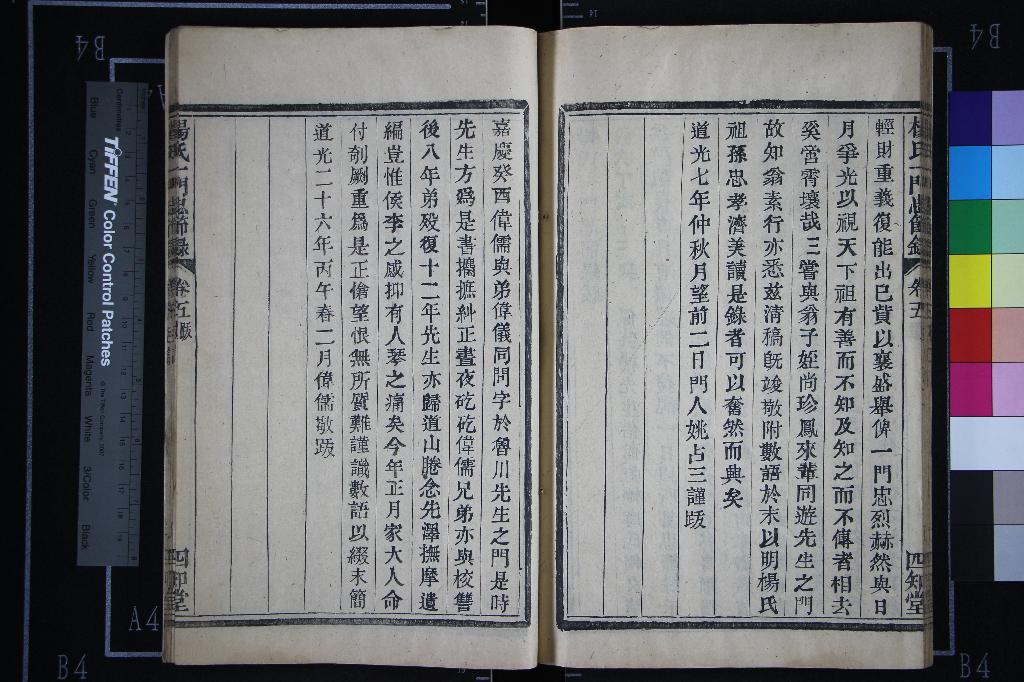 輕財重義復能出已貲以襄盛舉俾一門忠烈赫然與日
月爭光以視天下祖有善而不知及知之而不傳者相去
奚啻霄壤哉三嘗與翁子姪尚珍鳳來輩同遊先生之門
故知翁素行亦悉兹清稿旣竣敬附數語於末以明楊氏
祖孫忠孝濟美讀是錄者可以奮然而興矣
道光七年仲秋月望前二日門人姚占三謹跋
楊氏一門忠節錄
卷五
四知堂
嘉慶癸酉偉儒與弟偉儀同問字於魯川先生之門是時
先生方爲是書攟摭糾正晝夜矻矻偉儒兄弟亦與校讐
後八年弟歿復十二年先生亦歸道山睠念先澤撫摩遺
編豈惟侯李之感抑有人琴之痛矣今年正月家大人命
付剞劂重爲是正愴望恨無所質難謹識數語以綴末簡
道光二十六年丙午春二月偉儒敬跋
楊氏一門忠節錄
卷五 跋
四知堂
TIFFEN Color Control Patches
Blue Cyan Green Yellow Red Magenta White 3/Color Black
Centimetres
B4
B4
A4
B4
B4